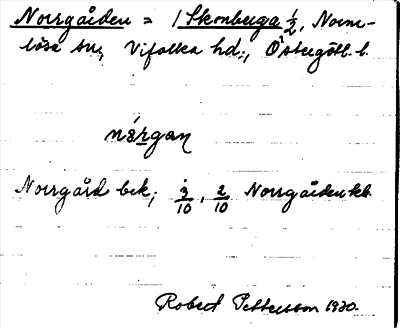 Norrgården = 1 Skonberga 1/2, Norm-
lösa sn, Vifolka hd., Östergötl. l.
nárgan
Norrgård bek; 3/10, 2/10 Norrgården kb.
Robert Pettersson 1930.